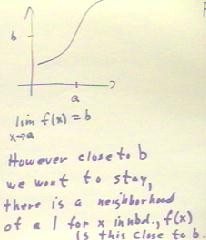 b
a
lim f(x) = b
x→a
However close to b
we want to stay,
there is a neighborhood
of a | for x in nbd., f(x)
is this close to b.